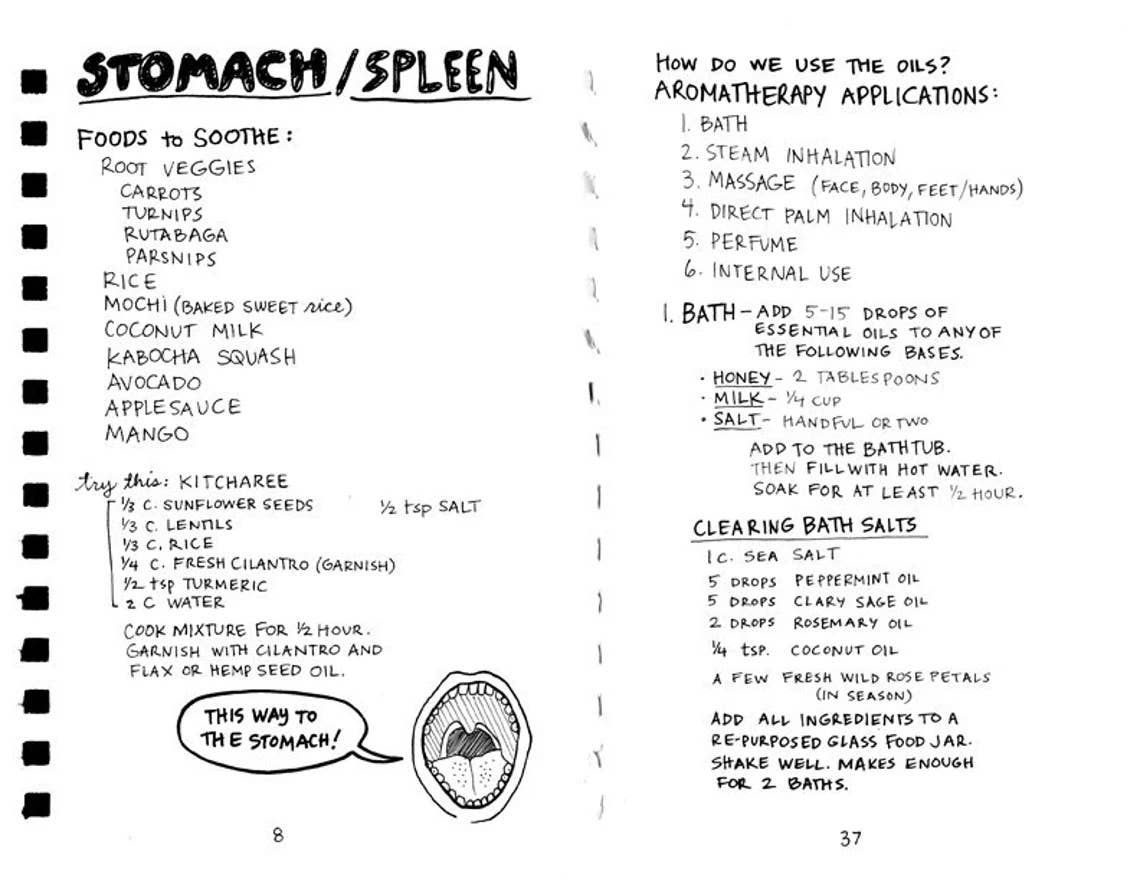 STOMACH/SPLEEN
FOODS to SOOTHE:
ROOT VEGGIES
CARROTS
TURNIPS
RUTABAGA
PARSNIPS
RICE
MOCHI (BAKED SWEET rice)
COCONUT MILK
KABOCHA SQUASH
AVOCADO
APPLESAUCE
MANGO
try this: KITCHAREE
1/3 C. SUNFLOWER SEEDS 1/2 tsp SALT
1/3 C. LENTILS
1/3 C. RICE
1/4 C. FRESH CILANTRO (GARNISH)
1/2 tsp TURMERIC
2 C WATER
COOK MIXTURE FOR 1/2 HOUR.
GARNISH WITH CILANTRO AND
FLAX OR HEMP SEED OIL.
THIS WAY TO
THE STOMACH!
8
HOW DO WE USE THE OILS?
AROMATHERAPY APPLICATIONS:
1. BATH
2. STEAM INHALATION
3. MASSAGE (FACE, BODY, FEET/HANDS)
4. DIRECT PALM INHALATION
5. PERFUME
6. INTERNAL USE
1. BATH - ADD 5-15 DROPS OF
ESSENTIAL OILS TO ANY OF
THE FOLLOWING BASES.
· HONEY - 2 TABLESPOONS
· MILK - 1/4 CUP
· SALT - HANDFUL OR TWO
ADD TO THE BATHTUB.
THEN FILL WITH HOT WATER.
SOAK FOR AT LEAST 1/2 HOUR.
CLEARING BATH SALTS
1 C. SEA SALT
5 DROPS PEPPERMINT OIL
5 DROPS CLARY SAGE OIL
2 DROPS ROSEMARY OIL
1/4 tsp. COCONUT OIL
A FEW FRESH WILD ROSE PETALS
(IN SEASON)
ADD ALL INGREDIENTS TO A
RE-PURPOSED GLASS FOOD JAR.
SHAKE WELL. MAKES ENOUGH
FOR 2 BATHS.
37